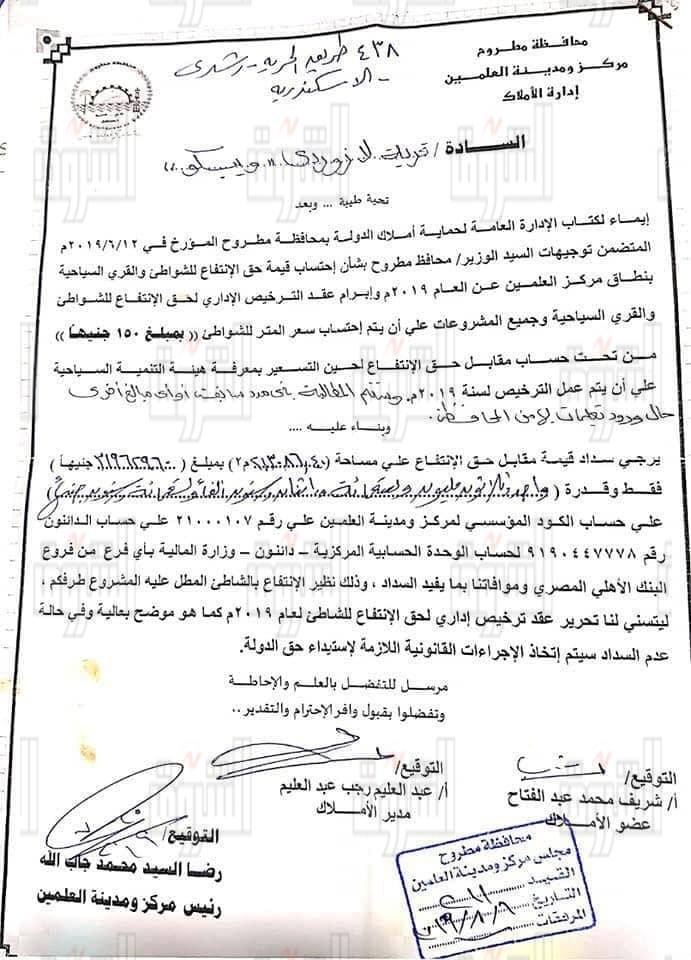 محافظة مطروح
مركز ومدينة العلمين
إدارة الأملاك
٤٣٨ طريق الحرية - رشدى
- الاسكندرية
السادة / قرية لازوردى
تحية طيبة ... وبعد
إيماء لكتاب الإدارة العامة لحماية أملاك الدولة بمحافظة مطروح المؤرخ في ٢٠١٩/٦/١٢م
المتضمن توجيهات السيد الوزير/ محافظ مطروح بشأن إحتساب قيمة حق الإنتفاع للشواطئ والقري السياحية
بنطاق مركز العلمين عن العام ٢٠١٩م وإبرام عقد الترخيص الإداري لحق الإنتفاع للشواطئ
والقري السياحية وجميع المشروعات علي أن يتم إحتساب سعر المتر للشواطئ (( بمبلغ ١٥٠ جنيهاً ))
من تحت حساب مقابل حق الإنتفاع لحين التسعير بمعرفة هيئة التنمية السياحية
علي أن يتم عمل الترخيص لسنة ٢٠١٩م. وستتم المطالبة بأى مدد سابقة أو أى مبالغ أخرى
حال ورود تعليمات من المحافظة.
وبناء عليه ...
يرجي سداد قيمة مقابل حق الإنتفاع علي مساحة ( م٢) بمبلغ ( جنيهاً )
فقط وقدرة (
علي حساب الكود المؤسسي لمركز ومدينة العلمين علي رقم ٢١٠٠٠١٠٧ علي حساب الداننون
رقم ٩١٩٠٤٤٧٧٧٨ لحساب الوحدة الحسابية المركزية – داننون – وزارة المالية بأي فرع من فروع
البنك الأهلي المصري وموافاتنا بما يفيد السداد ، وذلك نظير الإنتفاع بالشاطئ المطل عليه المشروع طرفكم ،
ليتسني لنا تحرير عقد ترخيص إداري لحق الإنتفاع للشاطئ لعام ٢٠١٩م كما هو موضح بعالية وفي حالة
عدم السداد سيتم إتخاذ الإجراءات القانونية اللازمة لإستيداء حق الدولة.
مرسل للتفضل بالعلم والإحاطة
وتفضلوا بقبول وافر الإحترام والتقدير ..
التوقيع/
أ/ شريف محمد عبد الفتاح
عضو الأملاك
التوقيع/
أ/ عبد العليم رجب عبد العليم
مدير الأملاك
التوقيع/
رضا السيد محمد جاب الله
رئيس مركز ومدينة العلمين
محافظة مطروح
مجلس مركز ومدينة العلمين
القيد
التاريخ ١٩/٨/٨
المرفقات
الشروق